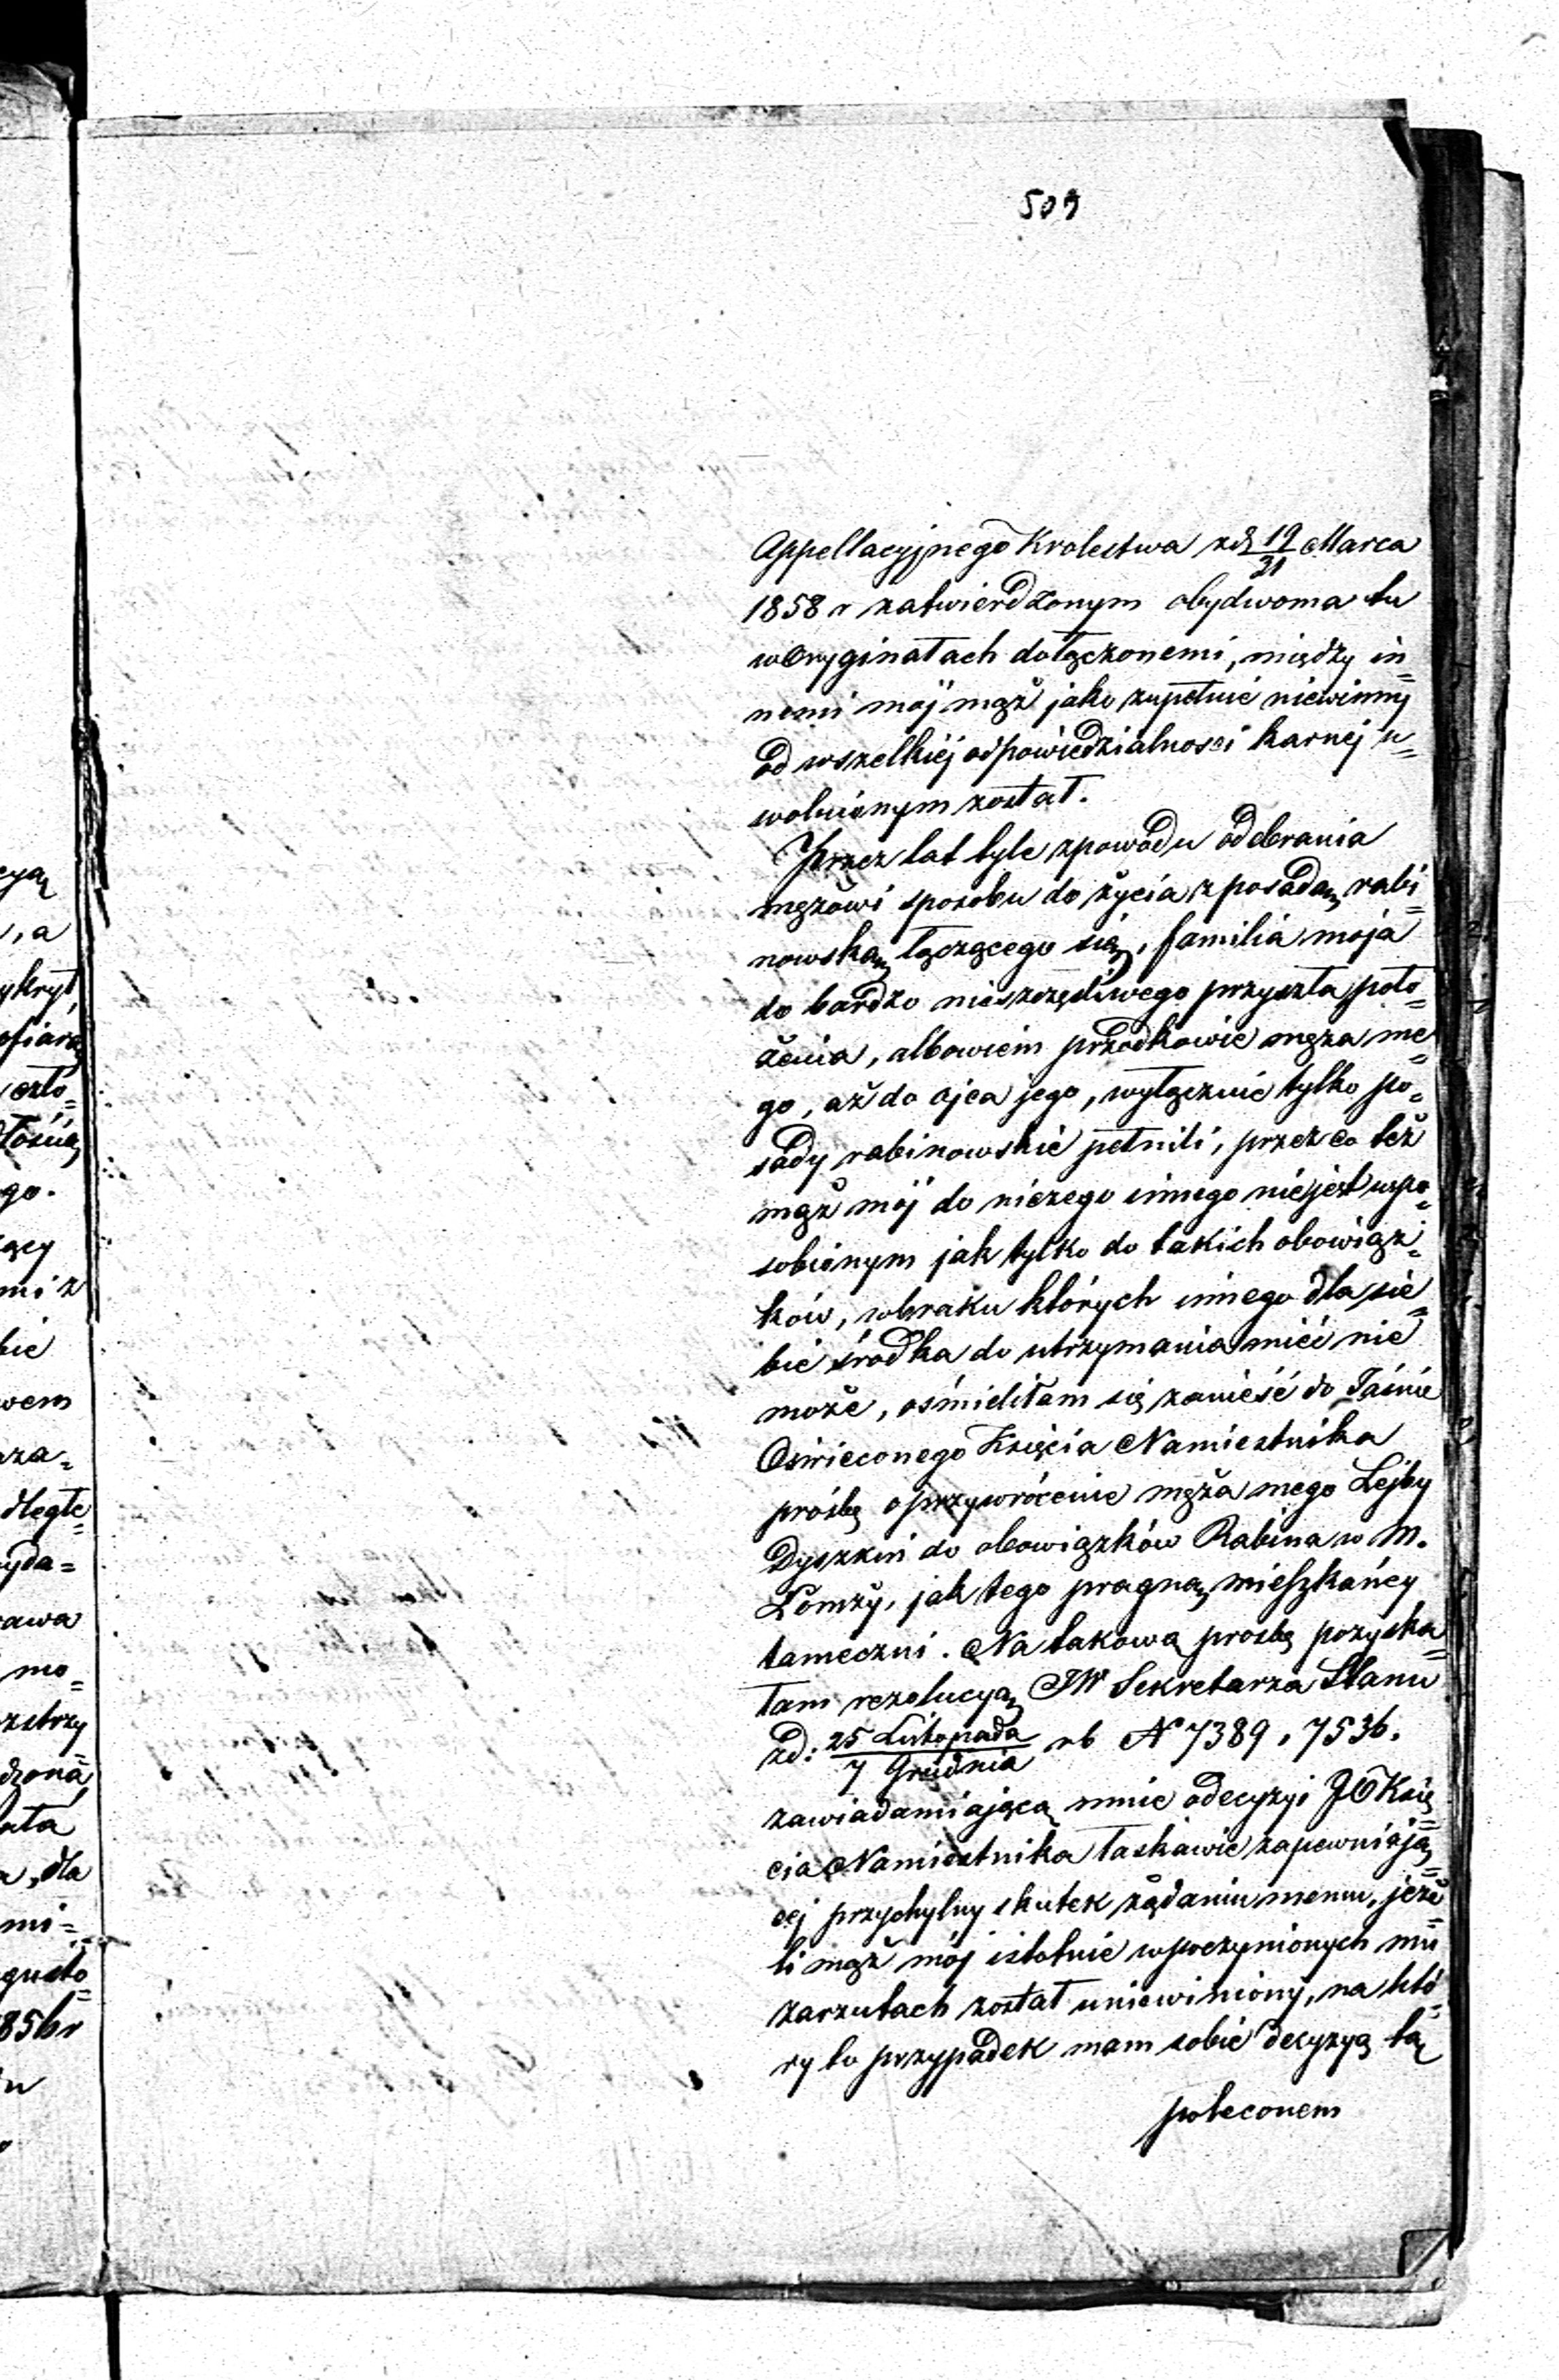 509
eya
, a
ykryt
ofiarą
czło=
łością
go.
ący
mi z
bie
wem
aza=
dległe
yda=
rawa
mo=
zstrzy
dzoną
ata
a, dla
mi=
gusto=
856 r
Appellacyjnego Krolestwa z d 19/31 Marca
1858 r zatwierdzonym obydwoma tu
w Oryginałach dołączonemi, między in=
nemi mój mąż jako zupełnie niewinny
od wszelkiej odpowiedzialnosci karnej u=
wolnionym został.
Przez lat tyle z powodu odebrania
mężowi sposobu do życia z posadą rabi=
nowską łączącego się, familia moja
do bardzo nieszczęśliwego przyszła poło=
żenia, albowiem przodkowie męża me=
go, aż do ojca jego, wyłącznie tylko po=
sady rabinowskie pełnili, przez co też
mąż mój do niczego innego nie jest uspo=
sobionym jak tylko do takich obowiąz=
ków, w braku których innego dla sie=
bie środka do utrzymania mieć nie
może, ośmieliłam się zanieść do Jaśnie
Oświeconego Księcia Namiestnika
prośbę o przywrócenie męża mego Lejby
Dyszkin do obowiązków Rabina w M.
Łomży, jak tego pragną mieszkańcy
tameczni. Na takową prosbę pozyska=
łam rezolucyą JW Sekretarza Stanu
z d: 25 Listopada/7 Grudnia rb N 7389, 7536.
zawiadamiającą mnie o decyzyi JO Księ=
cia Namiestnika łaskawie zapewniają=
cej przychylny skutek żądaniu memu, jeże=
li mąż mój istotnie w poczynionych mu
zarzutach został uniewiniony, na któ=
ry to przypadek mam sobie decyzyą tą
poleconem